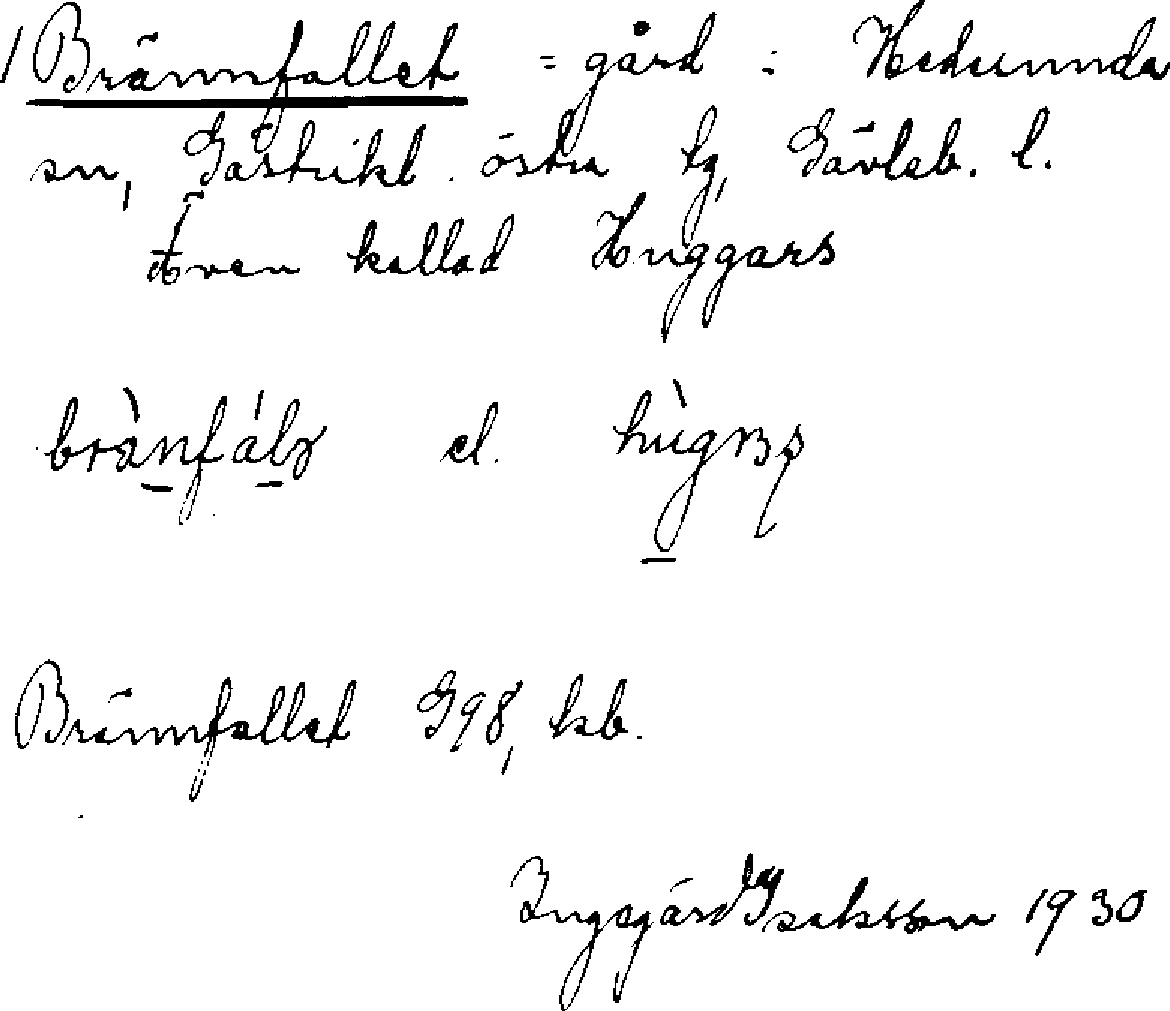 1 Brännfallet = gård : Hedesunda
sn, Gästrikl. östra tg, Gävleb. l.
Även kallad Huggars
brä̀nfálɜ el. hùgɐʂ
Brännfallet G98, ksb.
Ingegärd Isaksson 1930